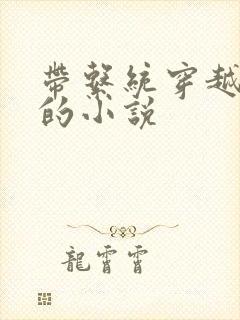 带系統穿越
的小説
龍霄霄